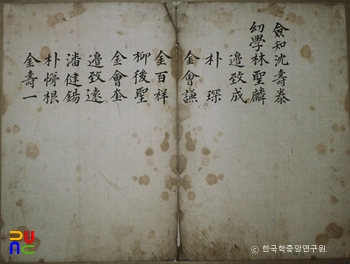 僉知沈壽泰
幼學林聖麟
邉致成
朴 琛
金會謙
金百祥
柳後聖
金會奎
邉致遠
潘健錫
朴 根
金壽一
ⓒ 한국학중앙연구원.